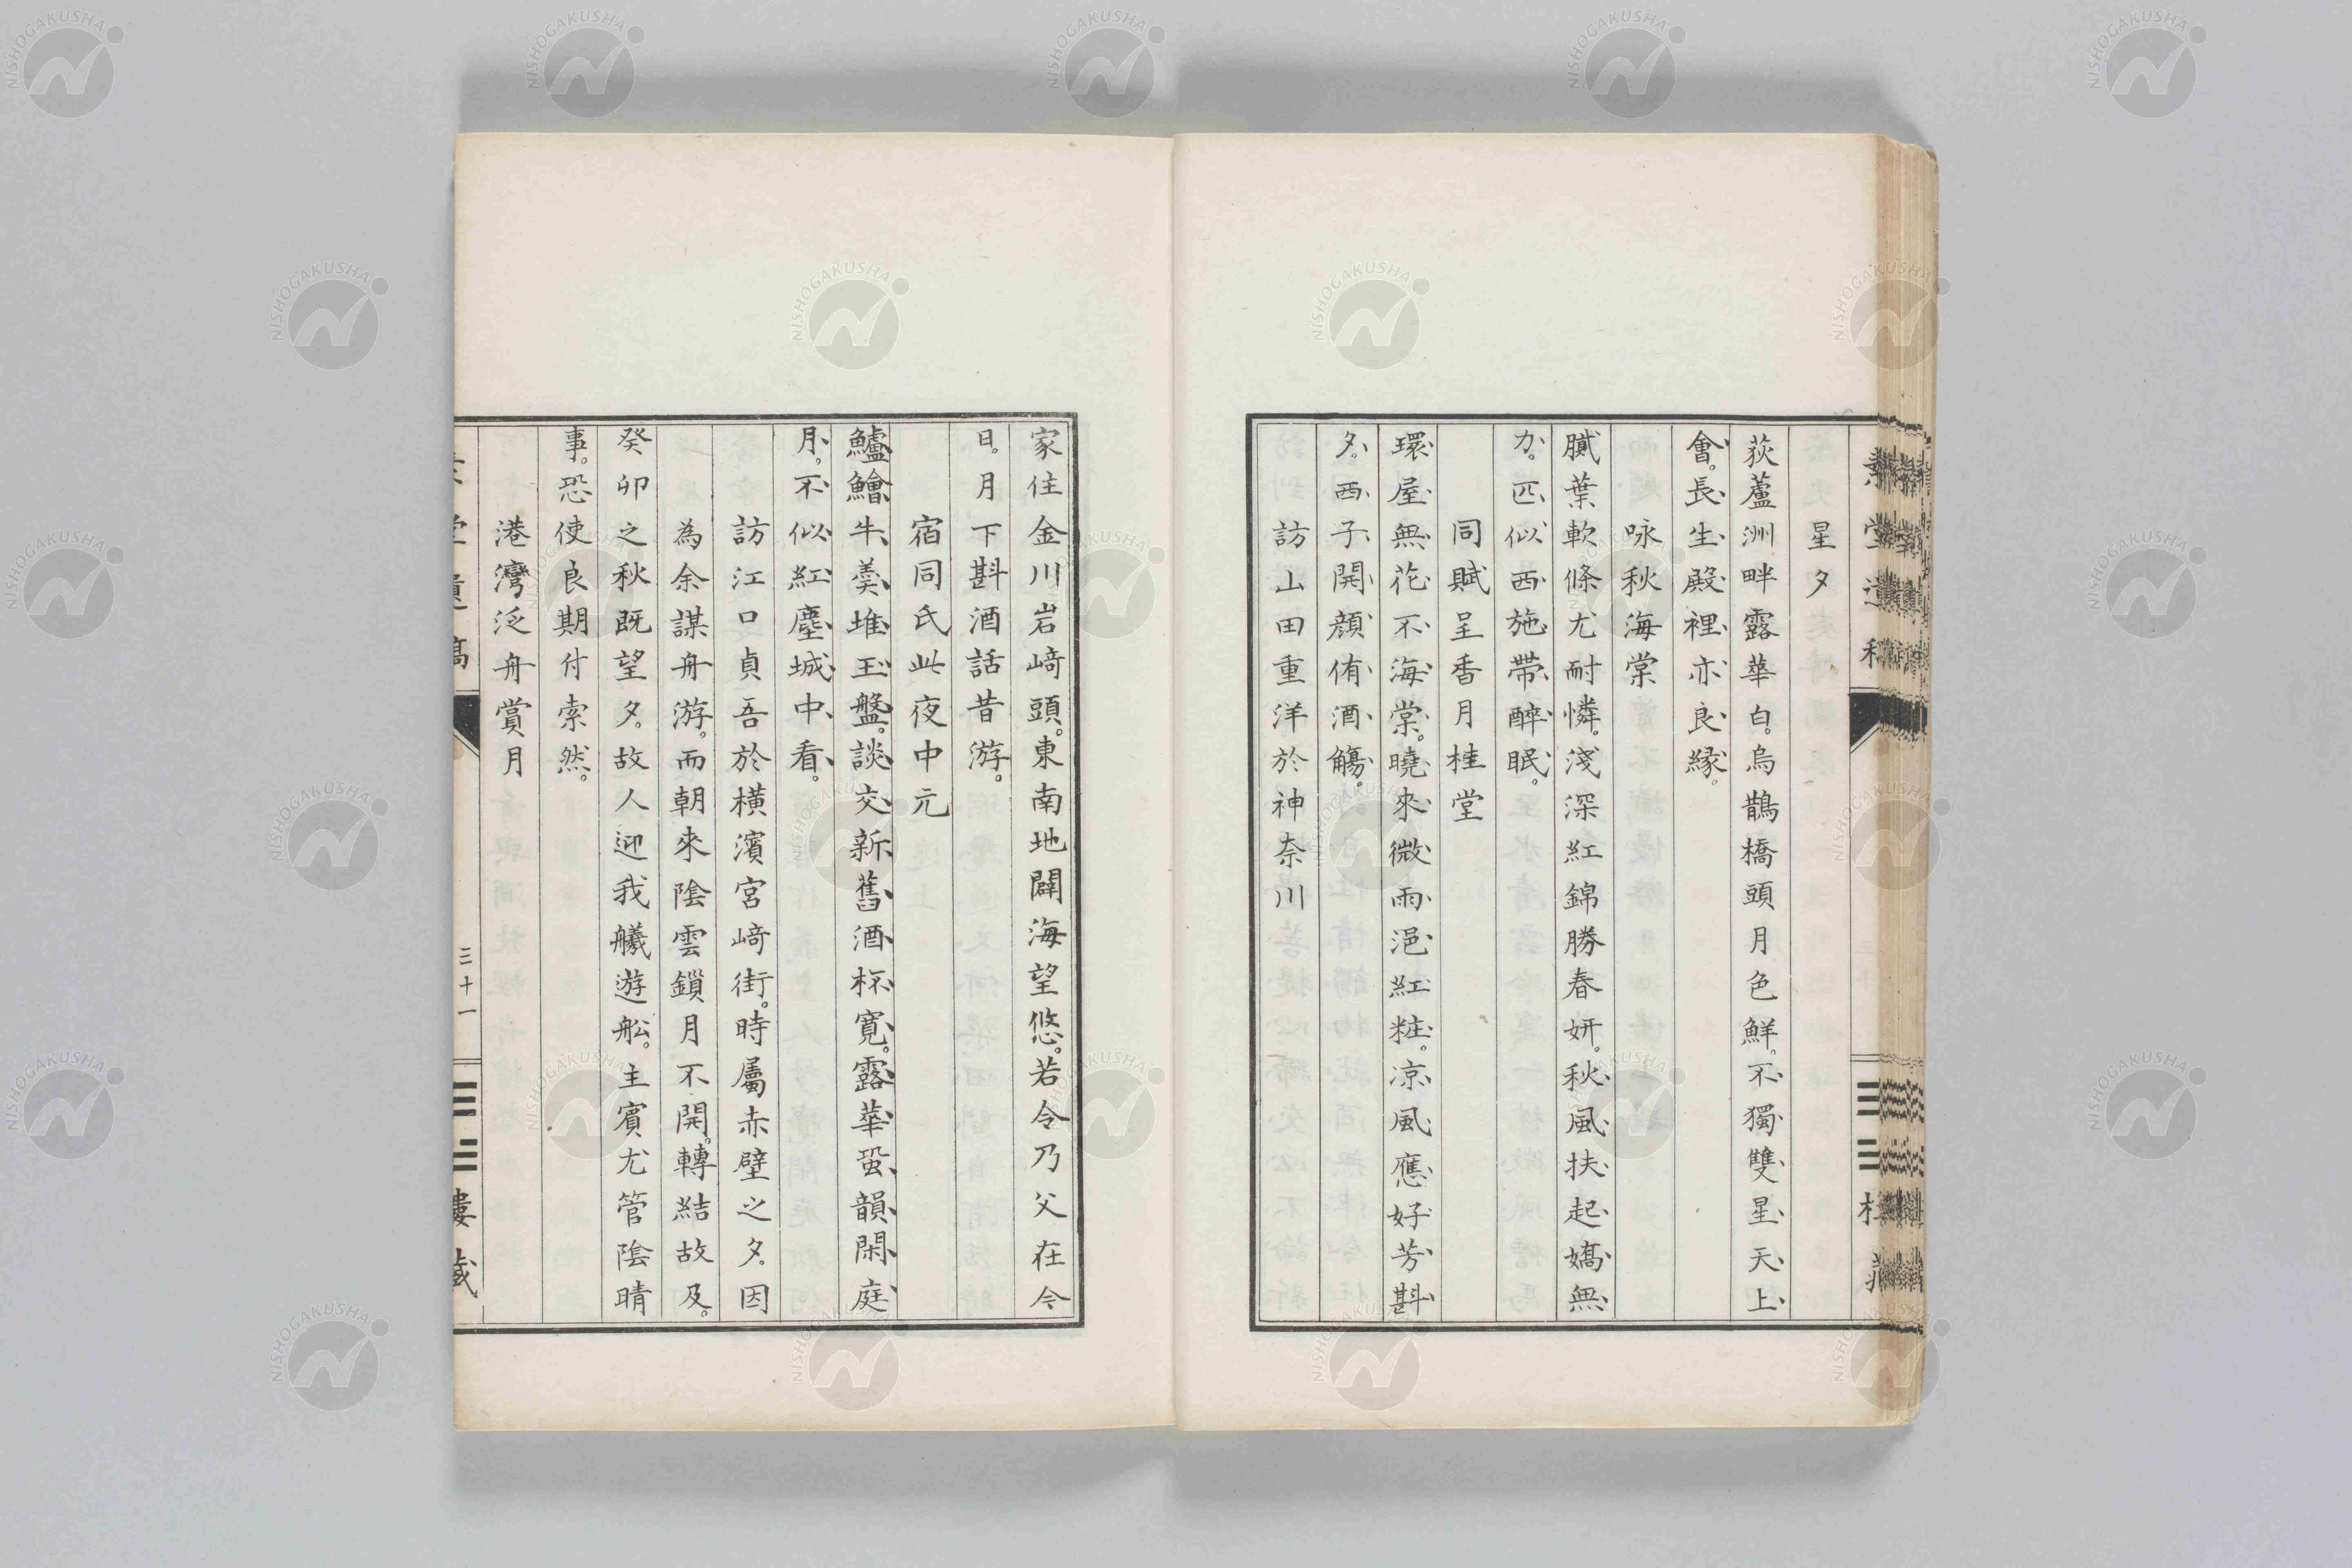 星夕
荻蘆洲畔露華白。烏鵲橋頭月色鮮。不獨雙星天上
會。長生殿裡亦良縁。
咏秋海棠
膩葉軟條尤耐憐。淺深紅錦勝春妍。秋風扶起嬌無
力。匹似西施帶醉眠。
同賦呈香月桂堂
環屋無花不海棠。曉來微雨浥紅粧。凉風應好芳斟
夕。西子開顏侑酒觴。
訪山田重洋於神奈川
家住金川岩﨑頭。東南地闢海望悠。若令乃父在今
日。月下斟酒話昔游。
宿同氏此夜中元
鱸鱠牛羹堆玉盤。談交新舊酒杯寛。露華蛩韻閑庭
月。不似紅塵城中看。
訪江口貞吾於横濱宮﨑街。時屬赤壁之夕。因
為余謀舟游。而朝來陰雲鎖月不開。轉結故及。
癸卯之秋既望夕。故人迎我艤遊舩。主賓尤管陰晴
事。恐使良期付索然。
港灣泛舟賞月
三十一
樓藏